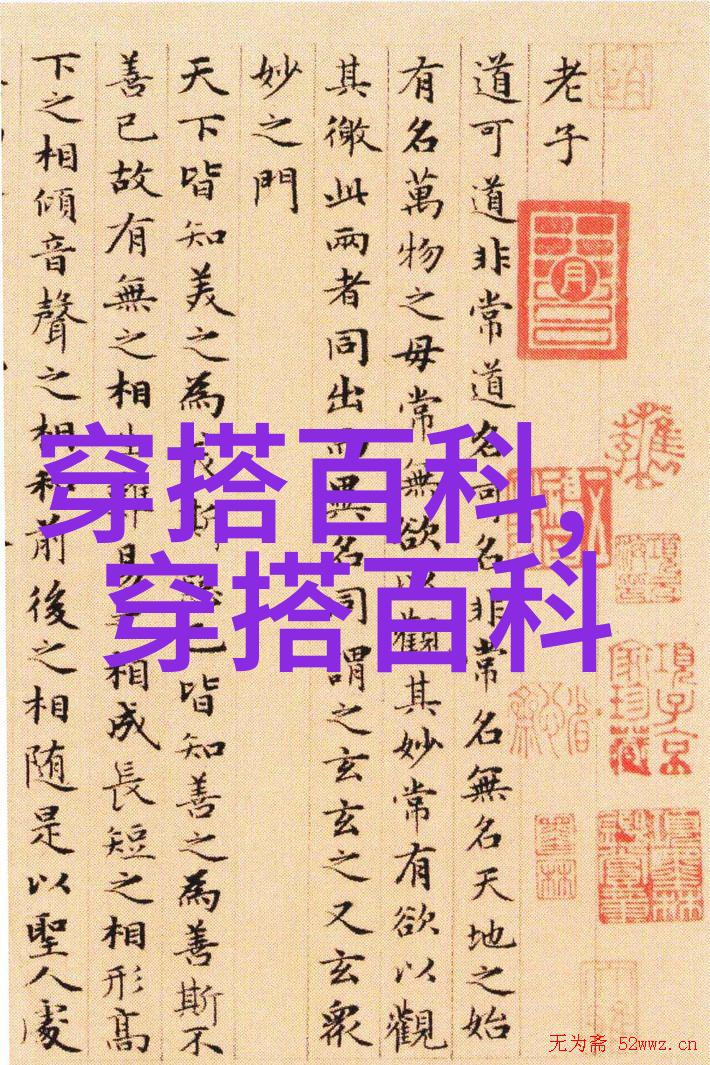 老子
道可道非常道名可名非常名無名天地之始
有名萬物之母常無欲以觀其妙常有欲以觀
其徼此兩者同出而異名同謂之玄玄之又玄衆
妙之門
天下皆知美之為美斯惡已皆知善之為善斯不
善已故有無之相生難易之相成長短之相形高
下之相傾音聲之相和前後之相随是以聖人處
穿搭百科,
穿搭百科
項子京
家珍藏
无为斋 52wwz.cn